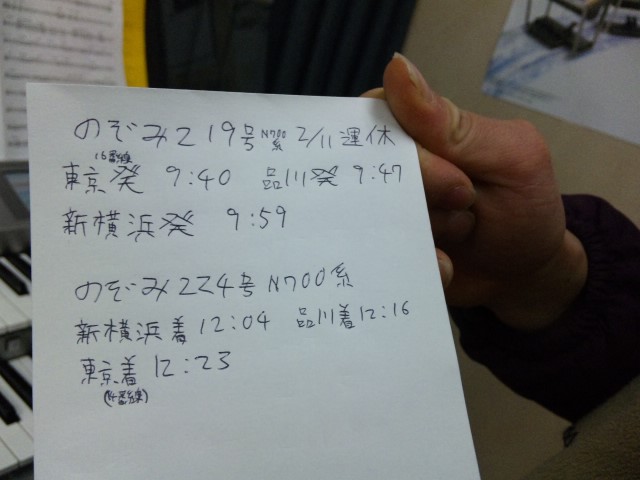 のぞみ219号 N700系 2/11運休
16番線
東京発 9:40 品川発 9:47
新横浜発 9:59
のぞみ224号 N700系
新横浜着 12:04 品川着 12:16
東京着 12:23
(14番線)